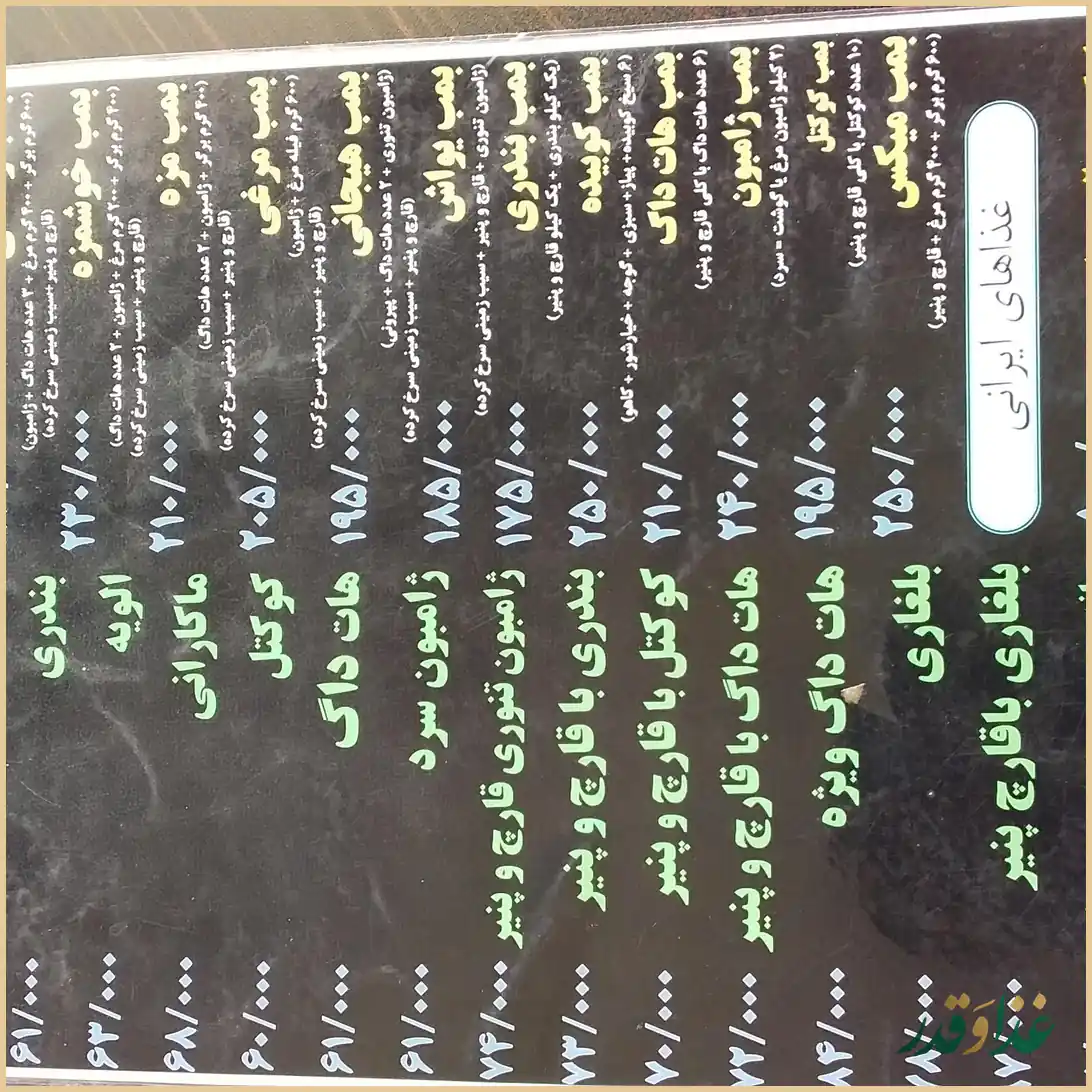 (۶۰۰ گرم برگر + ۴۰۰ گرم مرغ + ۳ عدد هات داگ + ژامبون)
(قارچ و پنیر + سیب زمینی سرخ کرده)
بمب خوشمزه ۲۳۰/۰۰۰
(۴۰۰ گرم برگر + ۲۰۰ گرم مرغ + ژامبون + ۲ عدد هات داگ)
(قارچ و پنیر + سیب زمینی سرخ کرده)
بمب مزه ۲۱۰/۰۰۰
(۴۰۰ گرم برگر + ژامبون + ۲ عدد هات داگ)
(قارچ و پنیر + سیب زمینی سرخ کرده)
بمب مرغی ۲۰۵/۰۰۰
(۶۰۰ گرم فیله مرغ + ژامبون)
(قارچ و پنیر + سیب زمینی سرخ کرده)
بمب هیجانی ۱۹۵/۰۰۰
(ژامبون تنوری + ۲ عدد هات داگ + پپرونی)
(قارچ و پنیر + سیب زمینی سرخ کرده)
بمب یواش ۱۸۵/۰۰۰
(ژامبون تنوری + قارچ و پنیر + سیب زمینی سرخ کرده)
بمب بندری ۱۷۵/۰۰۰
(یک کیلو بندری + یک کیلو قارچ و پنیر)
بمب کوبیده ۲۵۰/۰۰۰
(۶ سیخ کوبیده + پیاز + سبزی + گوجه + خیارشور + کاهو)
بمب هات داگ ۲۱۰/۰۰۰
(۶ عدد هات داگ با کلی قارچ و پنیر)
بمب ژامبون ۲۴۰/۰۰۰
(۲ کیلو ژامبون مرغ یا گوشت = سرد)
بمب کوکتل ۱۹۵/۰۰۰
(۱۰ عدد کوکتل با کلی قارچ و پنیر)
بمب میکس ۲۵۰/۰۰۰
(۶۰۰ گرم برگر + ۴۰۰ گرم مرغ + قارچ و پنیر)
غذاهای ایرانی
بندری ۶۱/۰۰۰
الویه ۶۳/۰۰۰
ماکارانی ۶۸/۰۰۰
کوکتل ۶۰/۰۰۰
هات داگ ۶۱/۰۰۰
ژامبون سرد ۶۱/۰۰۰
ژامبون تنوری قارچ و پنیر ۷۴/۰۰۰
بندری با قارچ و پنیر ۷۳/۰۰۰
کوکتل با قارچ و پنیر ۷۰/۰۰۰
هات داگ با قارچ و پنیر ۷۲/۰۰۰
هات داگ ویژه ۸۴/۰۰۰
بلغاری
بلغاری باقارچ پنیر
غذا و قدر